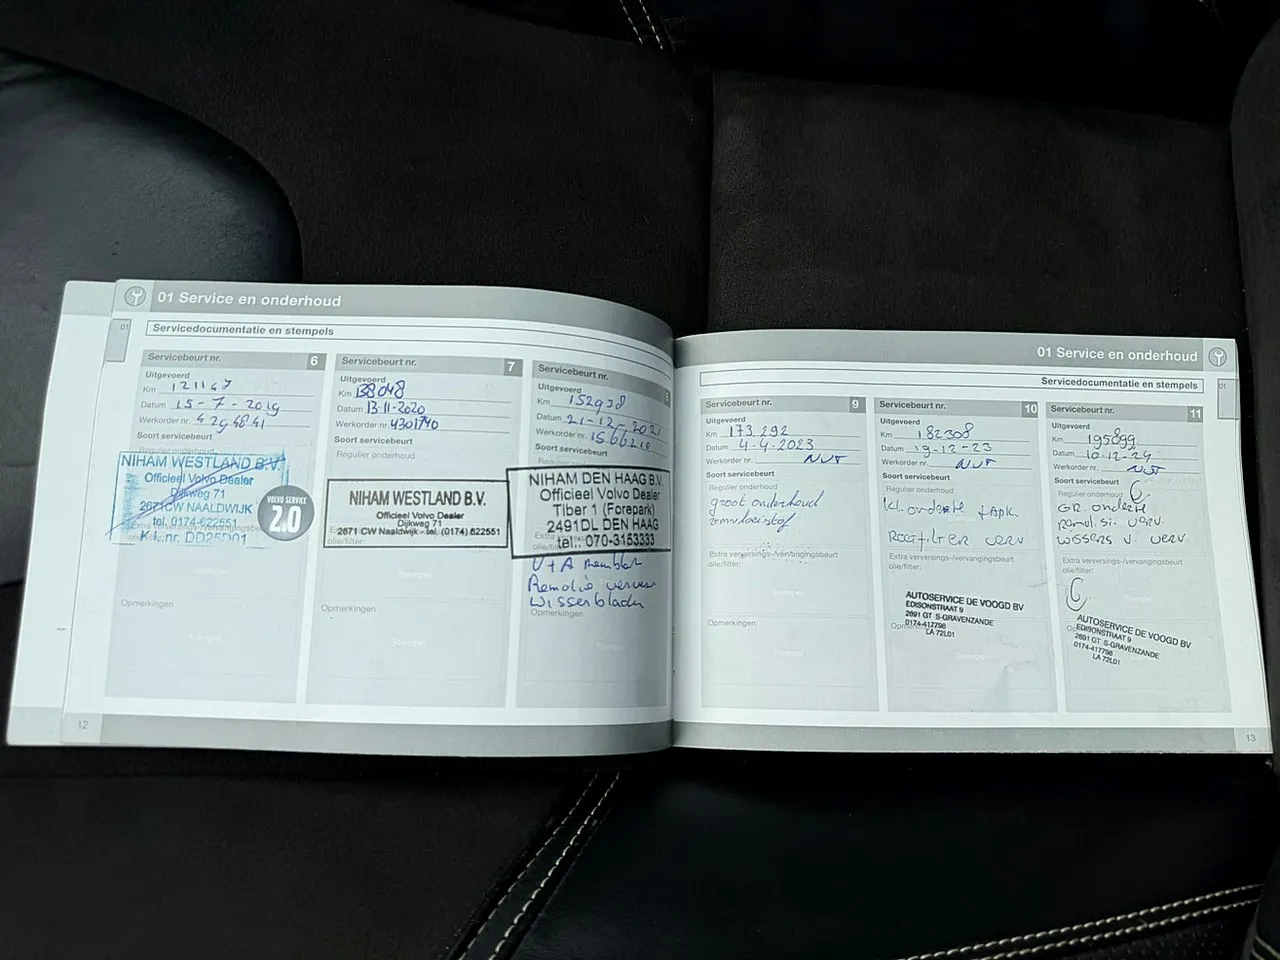 01 Service en onderhoud
01
Servicedocumentatie en stempels
Servicebeurt nr. 6
Uitgevoerd
Km 121147
Datum 15-7-2019
Werkorder nr.
Soort servicebeurt
Regulier onderhoud
NIHAM WESTLAND B.V.
Officieel Volvo Dealer
Dijkweg 71
2671CW NAALDWIJK
tel. 0174-622551
K.I.nr. DD25D01
VOLVO SERVICE
2.0
Stempel
Opmerkingen
Stempel
12
Servicebeurt nr. 7
Uitgevoerd
Km 138048
Datum 13-11-2020
Werkorder nr. 4301740
Soort servicebeurt
Regulier onderhoud
NIHAM WESTLAND B.V.
Officieel Volvo Dealer
Dijkweg 71
2671 CW Naaldwijk - tel. (0174) 622551
olie/filter:
Stempel
Opmerkingen
Stempel
Servicebeurt nr. 8
Uitgevoerd
Km 152938
Datum 21-12-2021
Werkorder nr.
Soort servicebeurt
NIHAM DEN HAAG B.V.
Officieel Volvo Dealer
Tiber 1 (Forepark)
2491DL DEN HAAG
tel.: 070-3153333
olie/filter:
V+A
Remolie
Wisserbladen
Opmerkingen
Stempel
01 Service en onderhoud
Servicedocumentatie en stempels
01
Servicebeurt nr. 9
Uitgevoerd
Km 173292
Datum 4-4-2023
Werkorder nr. NVT
Soort servicebeurt
Regulier onderhoud
groot onderhoud
remvloeistof
Extra verversings-/vervangingsbeurt
olie/filter:
Stempel
Opmerkingen
Stempel
Servicebeurt nr. 10
Uitgevoerd
Km 182308
Datum 19-12-23
Werkorder nr. NVT
Soort servicebeurt
Regulier onderhoud
kl. onderh +APK.
Stempel
filter verv
Extra verversings-/vervangingsbeurt
olie/filter:
AUTOSERVICE DE VOOGD BV
EDISONSTRAAT 9
2691 GT S-GRAVENZANDE
0174-417798
LA 72L01
Stempel
Servicebeurt nr. 11
Uitgevoerd
Km 195899
Datum 10-12-24
Werkorder nr. NVT
Soort servicebeurt
Regulier onderhoud
GR. onderh
verv.
wissers v. verv.
Extra verversings-/vervangingsbeurt
olie/filter:
AUTOSERVICE DE VOOGD BV
EDISONSTRAAT 9
2691 GT S-GRAVENZANDE
0174-417798
LA 72L01
Stempel
13